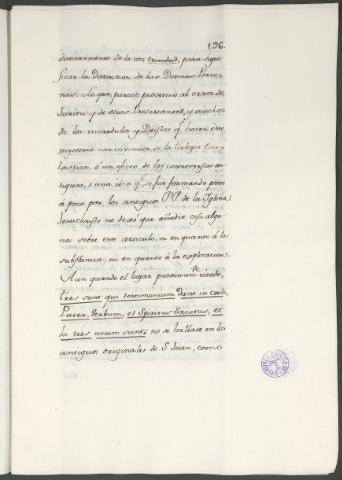 196.
de la voz trinidad, para signi-
ficar la Distincion de las Divinas Perso-
nas. Lo que parece proximo al error de
Jurieu, y de otros Protestantes, y muchos
de los incredulos y Deistas q.e hacen este
mysterio una invencion de la teologia Esco-
lastica, ó un efecto de las controversias an-
tiguas, ó una idea q.e se fue formando poco
á poco por los antiguos PP. de la Iglesia.
Jesuchristo no dexó que añadir cosa algu-
na sobre este articulo, ni en quanto á la
substancia, ni en quanto á la explicacion.
Aun quando el lugar proximam.te citado,
tres sunt qui testimonium dant in coelo,
Pater, Verbum, et Spiritus Sanctus, et
hi tres unum sunt: no se hallase en los
antiguos originales de S. Juan, como